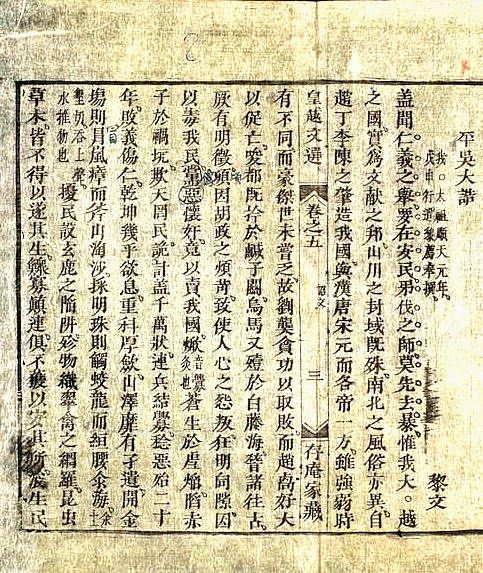 平吳大誥
我○太祖順天元年
戊申行遣黎廌奉撰
黎文
盖聞仁義之舉要在安民弔伐之師莫先去暴惟我大○越
之國實爲文献之邦山川之封域既殊南北之風俗亦異自
趙丁李陳之肇造我國與漢唐宋元而各帝一方雖强弱時
皇越文選 卷之五 三 存庵家藏
有不同而豪傑世未嘗乏故劉龑貪功以取敗而趙卨好大
以促亡唆都既拾於鹹子關烏馬又殪於白藤海嵇諸往古
厥有明徵頃因胡政之煩苛致使人心之怨叛狂明伺隙因
以毒我民當惡懷奸竟以賣我國焮音釁灸也蒼生於虐焰陷赤
子於禍坑欺天罔民詭計盖千萬狀連兵結釁稔惡殆二十
年敗義傷仁乾坤幾乎欲息重科厚歛山澤靡有孑遺開金
塲則冒嵐瘴而斧山淘沙採明珠則觸蛟龍而絙腰汆海汆土
墾切吞上聲水推物也擾民設玄鹿之陥阱殄物織翠禽之網羅昆虫
草木皆不得以遂其生鰥寡顛連俱不獲以安其所浚生民